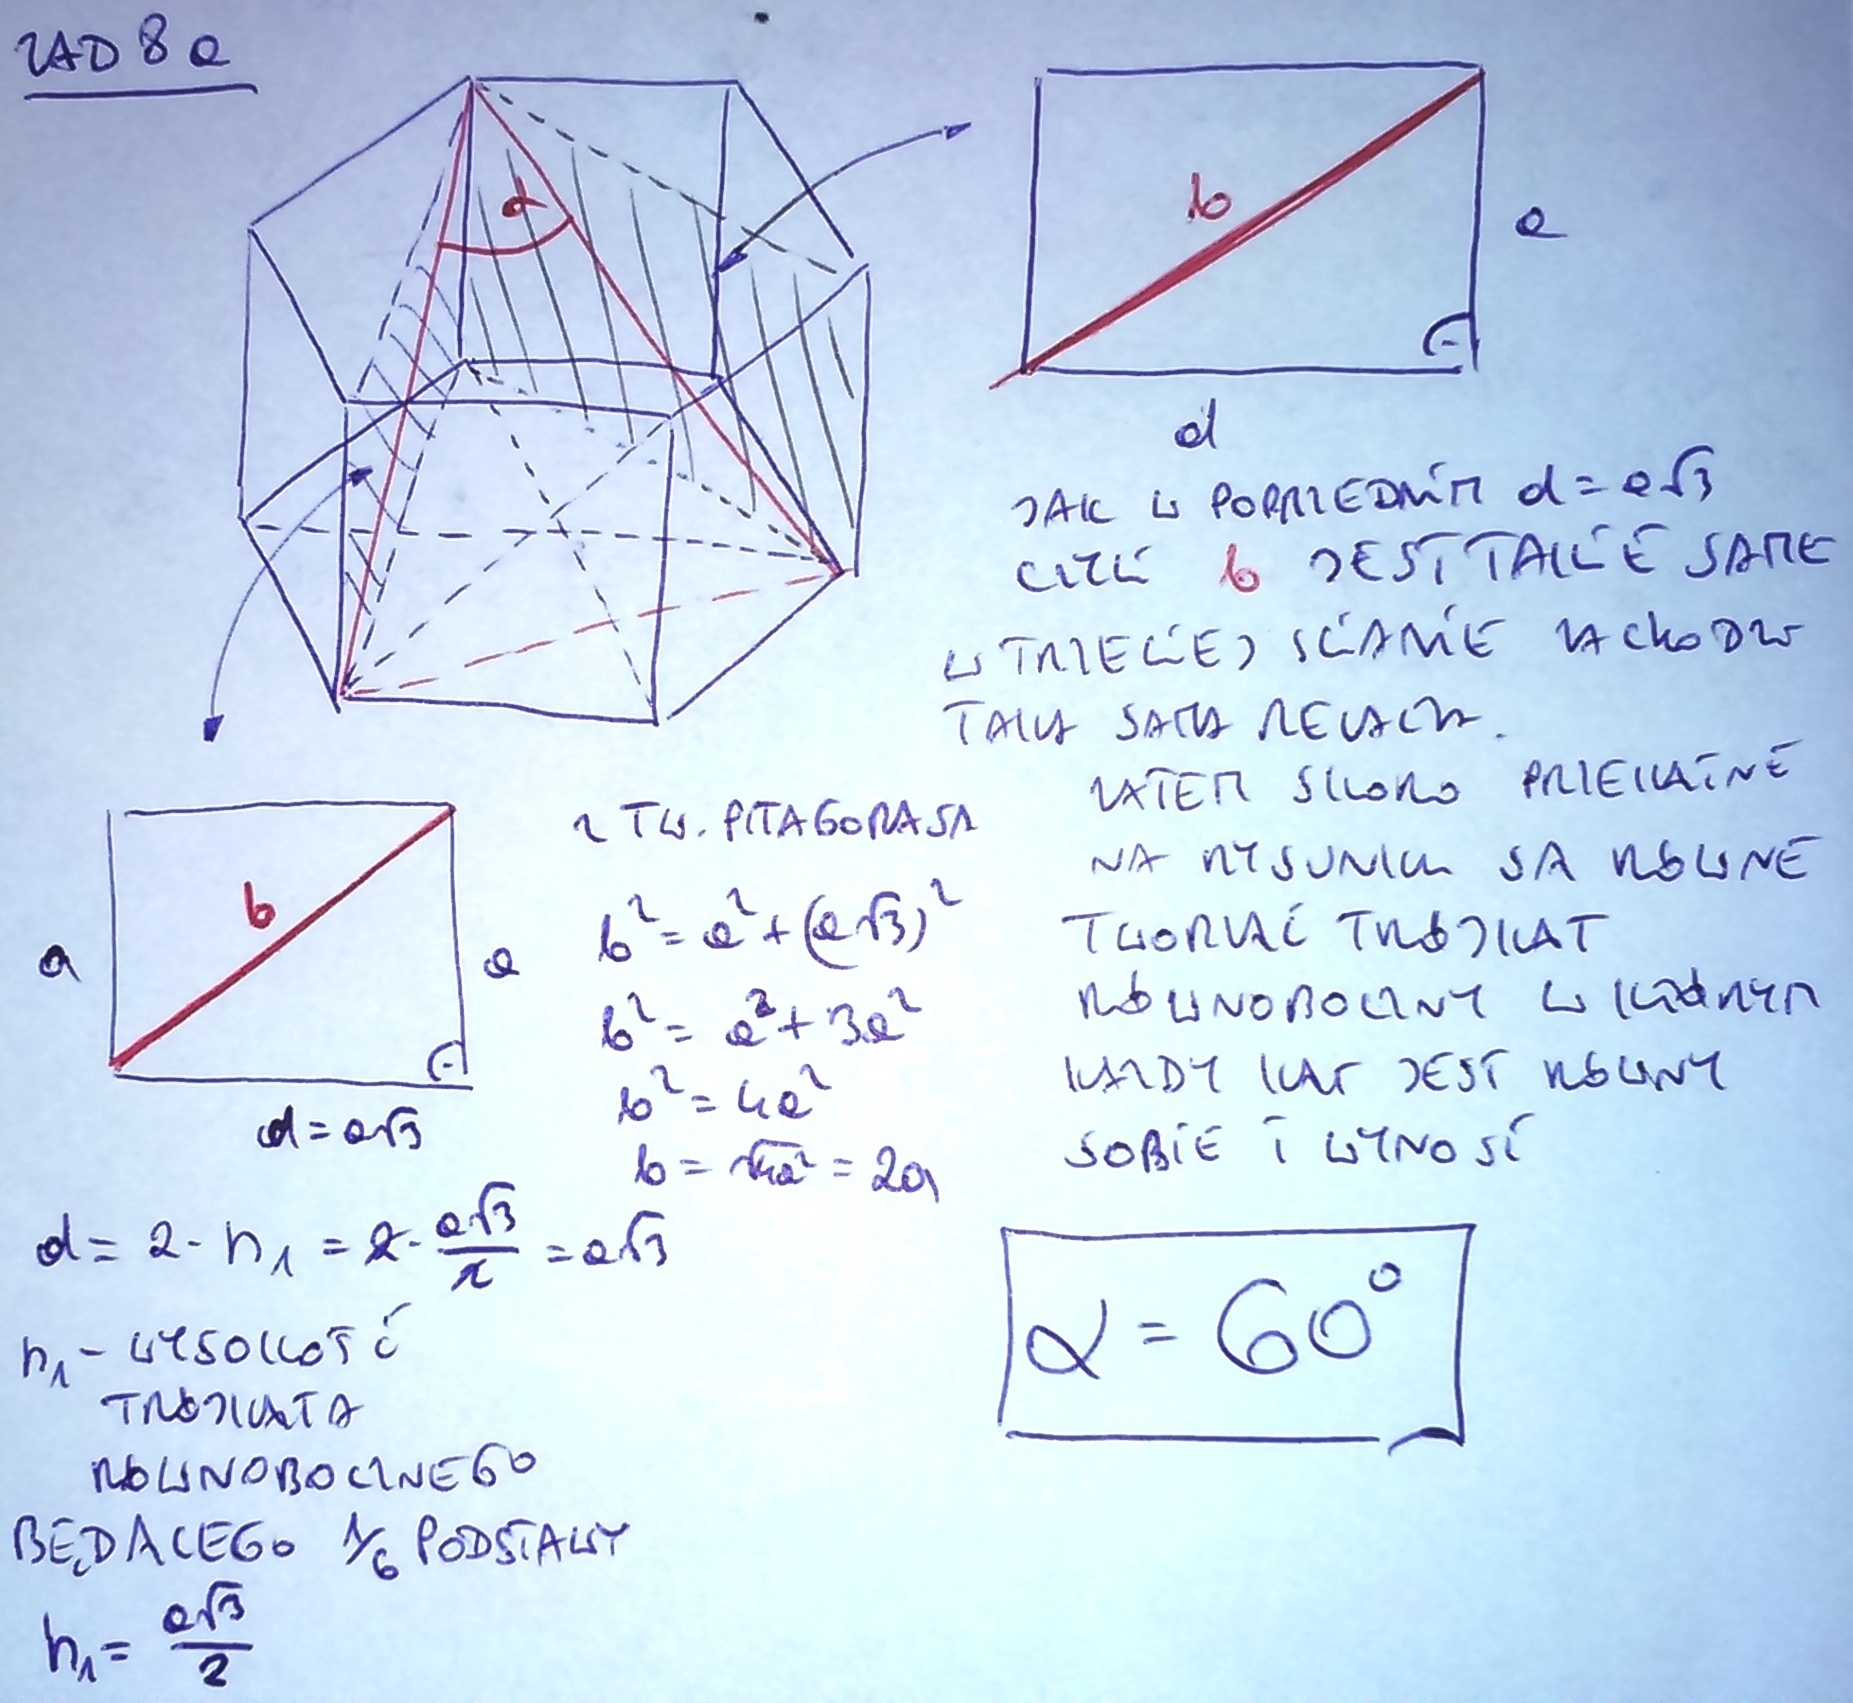 ZAD 8 a
α
b
a
d
JAK W POPRZEDNIM d = a√3
CZYLI b JEST TAKIE SAME
W TRZECIEJ ŚCIANIE ZACHODZI
TAKA SAMA RELACJA.
ZATEM SKORO PRZEKĄTNE
NA RYSUNKU SA RÓWNE
TWORZĄ TRÓJKĄT
RÓWNOBOCZNY W KTÓRYM
KAŻDY KĄT JEST RÓWNY
SOBIE I WYNOSI
α = 60°
a
b
a
d = a√3
Z TW. PITAGORASA
b² = a² + (a√3)²
b² = a² + 3a²
b² = 4a²
b = √4a² = 2a
d = 2 · h₁ = 2 · a√3/2 = a√3
h₁ – WYSOKOŚĆ
TRÓJKĄTA
RÓWNOBOCZNEGO
BĘDĄCEGO 1/6 PODSTAWY
h₁ = a√3/2